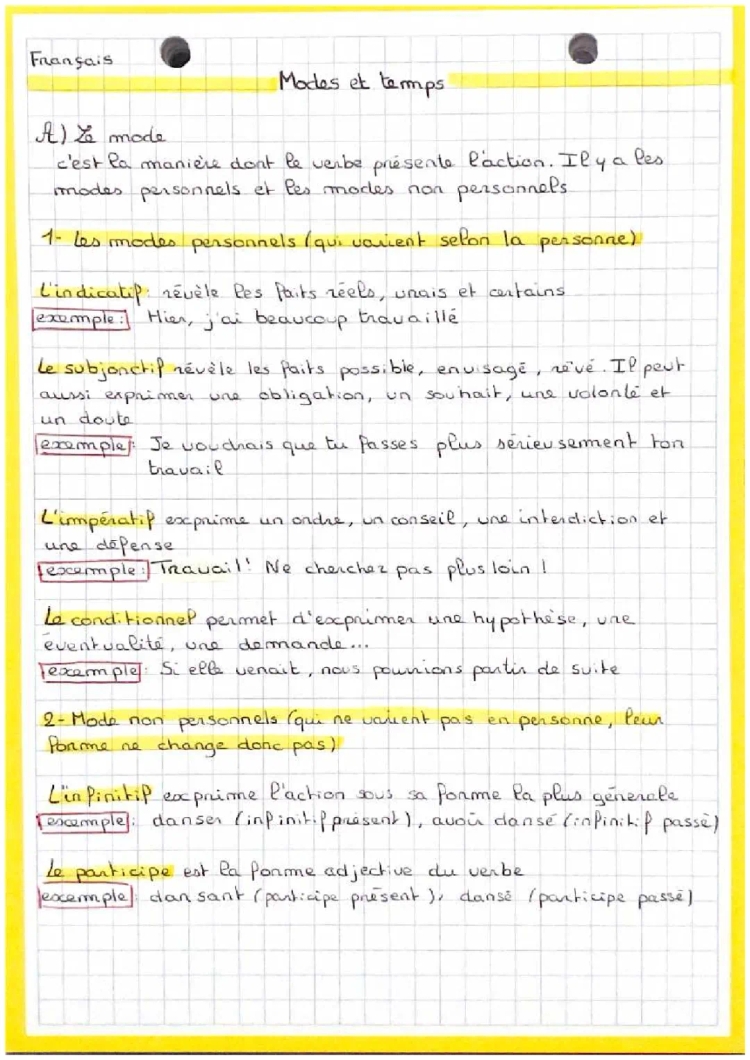 Français
Modes et temps
A) Le mode
c'est la manière dont le verbe présente l'action. Il y a les
modes personnels et les modes non personnels
1- Les modes personnels (qui varient selon la personne)
L'indicatif : révèle les faits réels, vrais et certains
exemple : Hier, j'ai beaucoup travaillé
Le subjonctif révèle les faits possible, envisagé, rêvé. Il peut
aussi exprimer une obligation, un souhait, une volonté et
un doute
exemple : Je voudrais que tu fasses plus sérieusement ton
travail
L'impératif exprime un ordre, un conseil, une interdiction et
une défense
exemple : Travail ! Ne cherchez pas plus loin !
Le conditionnel permet d'exprimer une hypothèse, une
éventualité, une demande...
exemple : Si elle venait, nous pourrions partir de suite
2- Mode non personnels (qui ne varient pas en personne, leur
forme ne change donc pas)
L'infinitif exprime l'action sous sa forme la plus générale
exemple : danser (infinitif présent), avoir dansé (infinitif passé)
Le participe est la forme adjective du verbe
exemple : dansant (participe présent), dansé (participe passé)